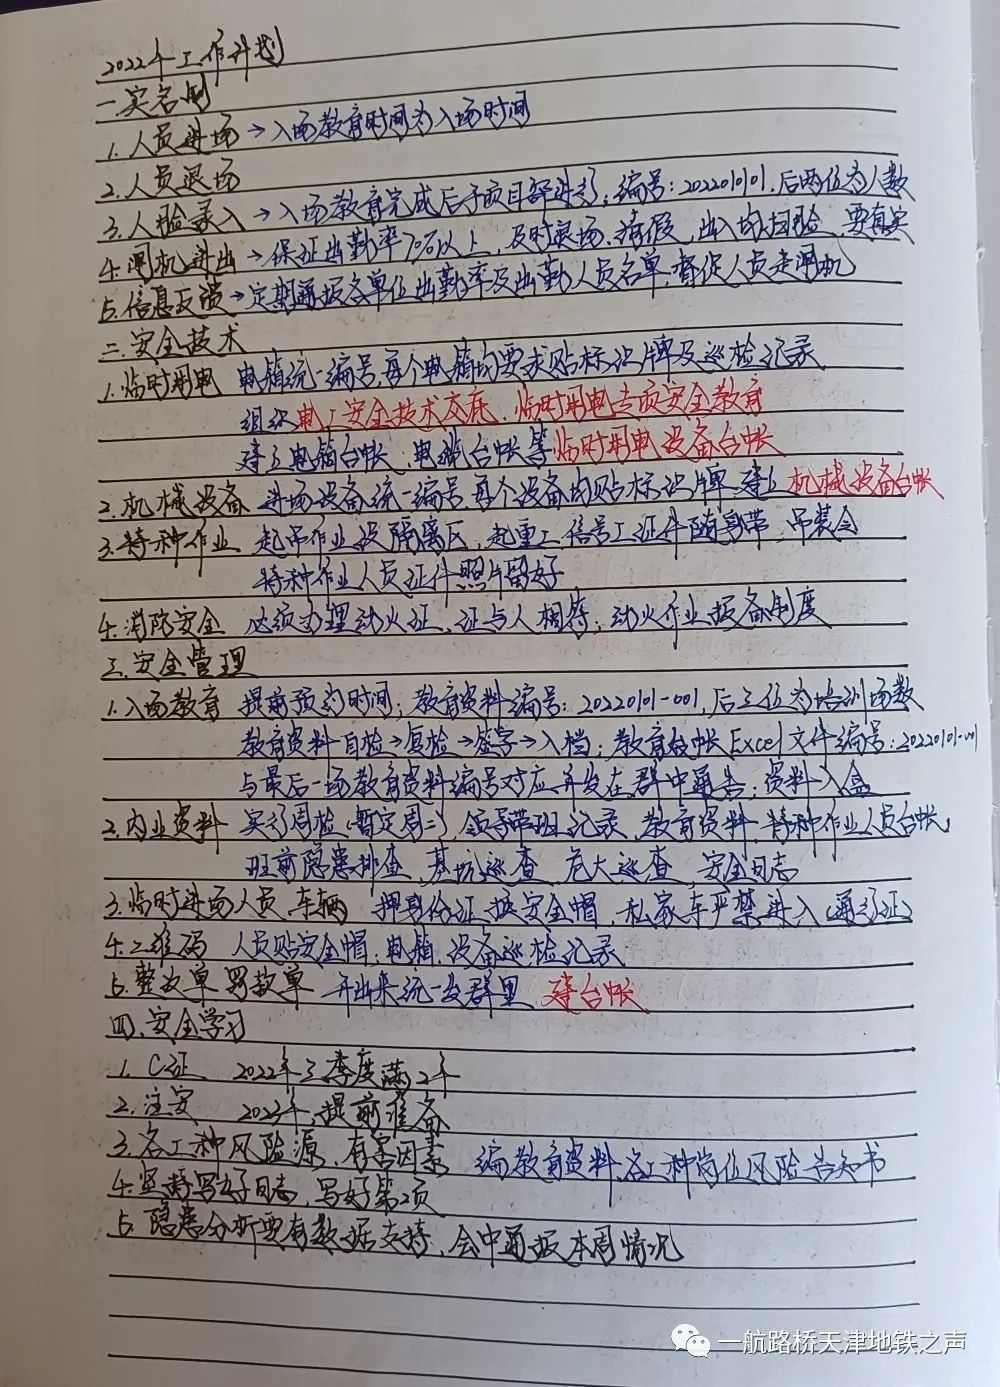 2022年工作计划
一.实名制
1.人员进场 → 入场教育时间为入场时间
2.人员退场
3.人脸录入 → 入场教育完成后于项目部进行,编号:2022010101.后两位为人数
4.闸机进出 → 保证出勤率70%以上,及时退场.请假,出入均扫脸,要真实
5.信息反馈 → 定期通报各单位出勤率及出勤人员名单.督促人员走闸机
二.安全技术
1.临时用电 电箱统一编号,每个电箱均要求贴标识牌及巡检记录
组织电工安全技术交底.临时用电专项安全教育
建立电箱台帐.电缆台帐等临时用电设备台帐
2.机械设备 进场设备统一编号,每个设备均贴标识牌 建立机械设备台帐
3.特种作业 起吊作业设隔离区,起重工 信号工证件随身带,吊装令
特种作业人员证件照片留好
4.消防安全 必须办理动火证,证与人相符,动火作业报备制度
三.安全管理
1.入场教育 提前预约时间;教育资料编号:20220101-001,后三位为培训场数
教育资料自检→复检→签字→入档;教育台帐Excel文件编号:20220101-001
与最后一场教育资料编号对应并发在群中通告;资料入盒
2.内业资料 实行周检(暂定周二) 领导带班记录,教育资料.特种作业人员台帐,
班前隐患排查,基坑巡查 危大巡查,安全日志
3.临时进场人员 车辆 押身份证换安全帽,私家车严禁进入(通行证)
4.二维码 人员贴安全帽,电箱,设备巡检记录
5.整改单 罚款单 开出来统一发群里 建台帐
四.安全学习
1.C证 2022年三季度满2年
2.注安 2023年,提前准备
3.各工种风险源,有害因素 编教育资料,各工种岗位风险告知书
4.坚持写好日志,写好第2项
5.隐患分析要有数据支持,会中通报本周情况
一航路桥天津地铁之声